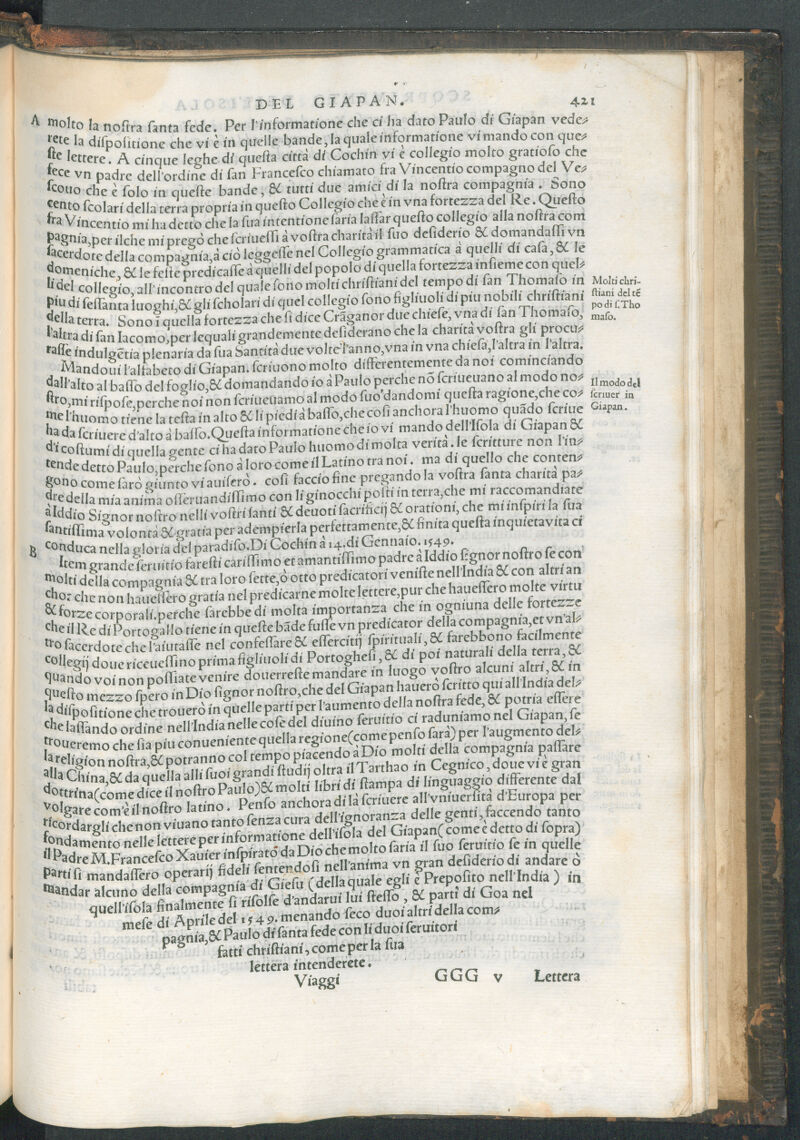 DEL GIAPAN. 421
A molto la noſtra ſanta fede. Per l'informatione che ci ha dato Paulo di Giapan vede⸗
rete la diſpoſitione che vi è in quelle bande, la quale informatione vi mando con que⸗
ſte lettere. A cinque leghe di queſta città di Cochin vi è collegio molto gratioſo che
fece vn padre dell'ordine di ſan Franceſco chiamato fra Vincentio compagno del Ve⸗
ſcouo che è ſolo in queſte bande, & tutti due amici di la noſtra compagnia. Sono
cento ſcolari della terra propria in queſto Collegio che è in vna fortezza del Re. Queſto
fra Vincentio mi ha detto che la ſua intentione ſaria laſſar queſto collegio alla noſtra com
pagnia, per ilche mi pregò che ſcriueſſi à voſtra charità il ſuo deſiderio & domandaſſi vn
ſacerdote della compagnia, à ciò leggeſſe nel Collegio grammatica à quelli di caſa, & le
domeniche, & le feſte predicaſſe à quelli del popolo di quella fortezza inſieme con quel⸗
li del collegio, all'incontro del quale ſono molti chriſtiani del tempo di ſan Thomaſo in
piu di ſeſſanta luoghi, & gli ſcholari di quel collegio ſono figliuoli di piu nobili chriſtiani
della terra. Sono ĩ quella fortezza che ſi dice Crãganor due chieſe, vna di ſan Thomaſo,
l'altra di ſan Iacomo, per lequali grandemente deſiderano che la charità voſtra gli procu⸗
raſſe indulgẽtia plenaria da ſua Santità due volte l'anno, vna in vna chieſa, l'altra in l'altra.
Molti chri-
ſtiani del tẽ
po di ſ. Tho
maſo.
Mandoui l'alfabeto di Giapan. ſcriuono molto differentemente da noi cominciando
dall'alto al baſſo del foglio, & domandando io à Paulo perche nõ ſcriueuano al modo no⸗
ſtro, mi riſpoſe, perche noi non ſcriueuamo al modo ſuo'dandomi queſta ragione, che co⸗
me l'huomo tiene la teſta in alto & li piedi à baſſo, che coſi anchora l'huomo quãdo ſcriue
ha da ſcriuere d'alto à baſſo. Queſta informatione che io vi mando dell'Iſola di Giapan &
d'i coſtumi di quella gente ci ha dato Paulo huomo di molta verità. le ſcritture non l'in⸗
tende detto Paulo, perche ſono à loro come il Latino tra noi. ma di quello che conten⸗
gono come ſarò giunto vi auiſerò. coſi faccio fine pregando la voſtra ſanta charità pa⸗
dre della mia anima oſſeruandiſſimo con li ginocchi poſti in terra, che mi raccomandiate
à Iddio Signor noſtro nelli voſtri ſanti & deuoti ſacrificij & orationi, che mi inſpiri la ſua
ſantiſſima volontà & gratia per adempierla perfettamente, & finita queſta inquieta vita ci
conduca nella gloria del paradiſo. Di Cochin à 14. di Gennaio. 1549.
Il modo del
ſcriuer in
Giapan.
B Item grande ſeruitio fareſti cariſſimo et amantiſſimo padre à Iddio ſignor noſtro ſe con
molti della compagnia & tra loro ſette, ò otto predicatori veniſte nell'India & con altri an
chor che non haueſſero gratia nel predicar ne molte lettere, pur che haueſſero molte virtu
& forze corporali. perche ſarebbe di molta importanza che in ogniuna delle fortezze
che il Re di Portogallo tiene in queſte bãde fuſſe vn predicator della compagnia, et vn'al⸗
tro ſacerdote che l'aiutaſſe nel confeſſare & eſſercitij ſpirituali, & farebbono facilmente
collegij doue riceueſſino prima figliuoli di Portogheſi, & di poi naturali della terra, &
quando voi non poſſiate venire douerreſte mandare in luogo voſtro alcuni altri, & in
queſto mezzo ſpero in Dio ſignor noſtro, che del Giapan hauerò ſcritto qui all'India del⸗
la diſpoſitione che trouerò in quelle parti per l'aumento della noſtra fede, & potria eſſere
che laſſando ordine nell'India nelle coſe del diuino ſeruitio ci raduniamo nel Giapan, ſe
troueremo che ſia piu conueniente quella regione (come penſo ſarà) per l'augmento del⸗
la religion noſtra, & potranno col tempo piacendo à Dio molti della compagnia paſſare
alla China, & da quella alli ſuoi grandi ſtudij oltra il Tarthao in Cegnico, doue vi è gran
dottrina (come dice il noſtro Paulo) & molti libri di ſtampa di linguaggio differente dal
volgare com'è il noſtro latino. Penſo anchora di là ſcriuere all'vniuerſità d'Europa per
ricordargli che non viuano tanto ſenza cura dell'ignoranza delle genti, faccendo tanto
fondamento nelle lettere per informatione dell'iſola del Giapan (come è detto di ſopra)
il Padre M. Franceſco Xauier inſpirato da Dio che molto ſaria il ſuo ſeruitio ſe in quelle
parti ſi mandaſſero operarij fideli ſentendoſi nell'anima vn gran deſiderio di andare ò
mandar alcuno della compagnia di Gieſu (della quale egli è Prepoſito nell'India) in
quell'iſola finalmente ſi riſolſe d'andarui lui ſteſſo, & partì di Goa nel
meſe di Aprile del 1549. menando ſeco duoi altri della com⸗
pagnia, & Paulo di ſanta fede con li duoi ſeruitori
fatti chriſtiani, come per la ſua
lettera intenderete.
Viaggi GGG v Lettera